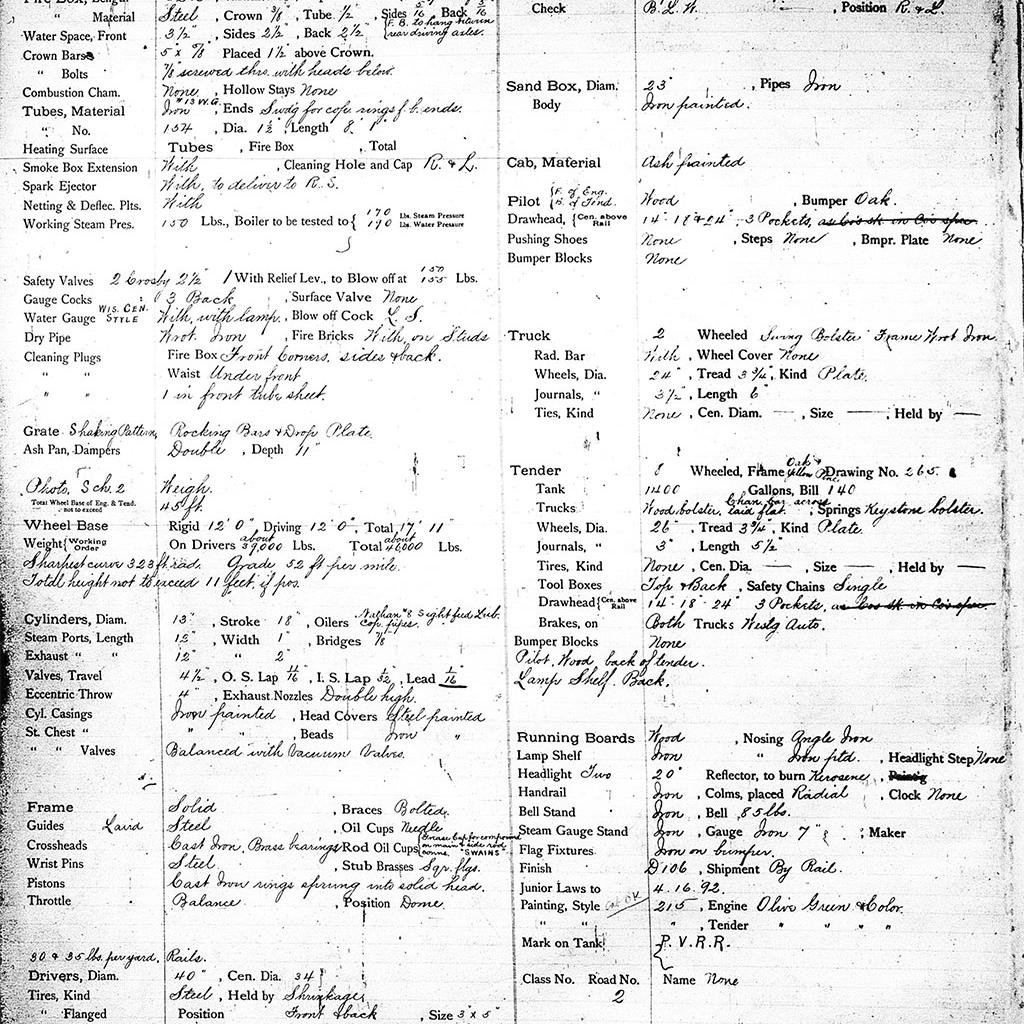 Material Steel, Crown 3/8, Tube 1/2, Sides 5/16 Back 5/16
Water Space, Front 3 1/2", Sides 2 1/2, Back 2 1/2 { F. B. to hang between rear driving axles.
Crown Bars 5" x 7/8" Placed 1 1/2 above Crown.
" Bolts 7/8 screwed thro. with heads below.
Combustion Cham. None, Hollow Stays None
Tubes, Material Iron #13 W.G., Ends Swdg for cop. rings f. b. ends.
" No. 154, Dia. 1 1/2, Length 8' 1"
Heating Surface Tubes , Fire Box , Total
Smoke Box Extension With , Cleaning Hole and Cap R. & L.
Spark Ejector With, to deliver to R. S.
Netting & Deflec. Plts. With
Working Steam Pres. 150 Lbs., Boiler to be tested to { 170 Lbs. Steam Pressure 190 Lbs. Water Pressure
Safety Valves 2 Crosby 2 1/2" 1 With Relief Lev., to Blow off at 150 155 Lbs.
Gauge Cocks 3 Back , Surface Valve None
Water Gauge WIS. CEN. STYLE With, with lamp, Blow off Cock L. S.
Dry Pipe Wrot. Iron , Fire Bricks With, on Studs
Cleaning Plugs Fire Box Front Corners, sides & back.
" " Waist Under front
" " 1 in front tube sheet.
Grate Shaking Pattern, Rocking Bars & Drop Plate.
Ash Pan, Dampers Double , Depth 11"
Photo, Sch. 2 Weigh.
Total Wheel Base of Eng. & Tend. not to exceed 45 ft.
Wheel Base Rigid 12' 0", Driving 12' 0", Total 17' 11"
Weight { Working Order On Drivers about 39,000 Lbs. Total about 46000 Lbs.
Sharpest curve 323 ft. rad. Grade 52 ft per mile.
Total height not to exceed 11 feet, if pos.
Cylinders, Diam. 13", Stroke 18", Oilers Nathan #8 Sightfeed Lub. cop. pipes.
Steam Ports, Length 12", Width 1", Bridges 7/8
Exhaust " " 12" " 2"
Valves, Travel 4 1/2, O. S. Lap 11/16, I. S. Lap 1/32, Lead 1/16
Eccentric Throw 4", Exhaust Nozzles Double high.
Cyl. Casings Iron painted , Head Covers Steel painted
St. Chest " " " , Beads Iron "
" " Valves Balanced with Vacuum Valves.
Frame Solid , Braces Bolted.
Guides Laird Steel , Oil Cups Needle
Crossheads Cast Iron, Brass bearings Rod Oil Cups { Grease Cup for compound on main & side rod conns. "SWAINS"
Wrist Pins Steel , Stub Brasses Sqr. flgs.
Pistons Cast Iron rings sprung into solid head.
Throttle Balance , Position Dome.
30 & 35 lbs. per yard. Rails.
Drivers, Diam. 40", Cen. Dia. 34
Tires, Kind Steel, Held by Shrinkage,
" Flanged Position Front & back , Size 3 x 5"
Check B. L. W. , Position R. & L.
Sand Box, Diam. 23" , Pipes Iron
Body Iron painted.
Cab, Material Ash painted
Pilot { F. of Eng. B. of Tend. Wood , Bumper Oak.
Drawhead, { Cen. above Rail 14" 18 & 24" 3 Pockets,
Pushing Shoes None , Steps None , Bmpr. Plate None
Bumper Blocks None
Truck 2 Wheeled Swing Bolster Frame Wrot Iron
Rad. Bar With, Wheel Cover None
Wheels, Dia. 24", Tread 3 3/4", Kind Plate.
Journals, " 3 1/2, Length 6"
Ties, Kind None, Cen. Diam. — , Size — , Held by —
Tender 8 Wheeled, Frame Oak & Yellow Pine, Drawing No. 265.
Tank 1400 Gallons, Bill 140
Trucks Wood bolster, Chan. bar across laid flat. , Springs Keystone bolster.
Wheels, Dia. 26", Tread 3 3/4, Kind Plate
Journals, " 3", Length 5 1/2
Tires, Kind None, Cen. Dia. — , Size — , Held by —
Tool Boxes Top & Back , Safety Chains Single
Drawhead { Cen. above Rail 14" 18" 24" 3 Pockets,
Brakes, on Both Trucks Westg Auto.
Bumper Blocks None
Pilot, Wood, back of tender.
Lamp Shelf. Back.
Running Boards Wood , Nosing Angle Iron
Lamp Shelf Iron " Iron ptd. , Headlight Step None
Headlight Two 20" Reflector, to burn Kerosene,
Handrail Iron , Colms, placed Radial , Clock None
Bell Stand Iron , Bell 85 lbs.
Steam Gauge Stand Iron , Gauge Iron 7" ; Maker
Flag Fixtures Iron on bumper.
Finish D106 , Shipment By Rail.
Junior Laws to 4. 16. 92.
Painting, Style 215 , Engine Olive Green & Color.
" " , Tender " " " "
Mark on Tank P. V. R. R.
Class No. Road No. 2 Name None